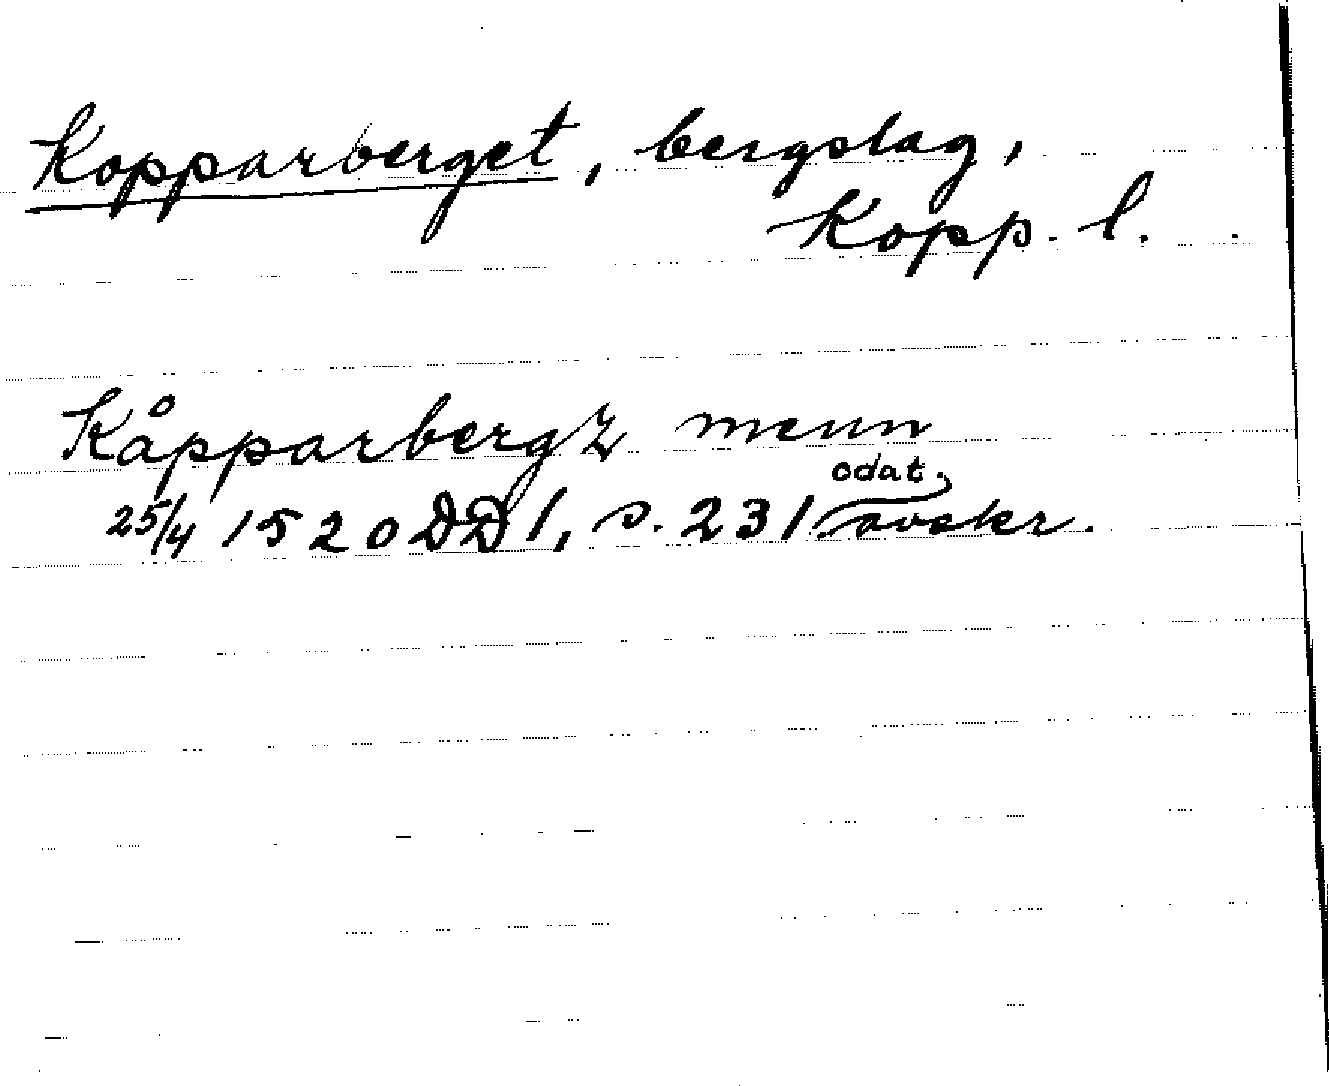 Kopparberget, bergslag,
Kopp. l.
Kåpparbergz menn
25/4 1520 DD 1, s. 231 odat. avskr.